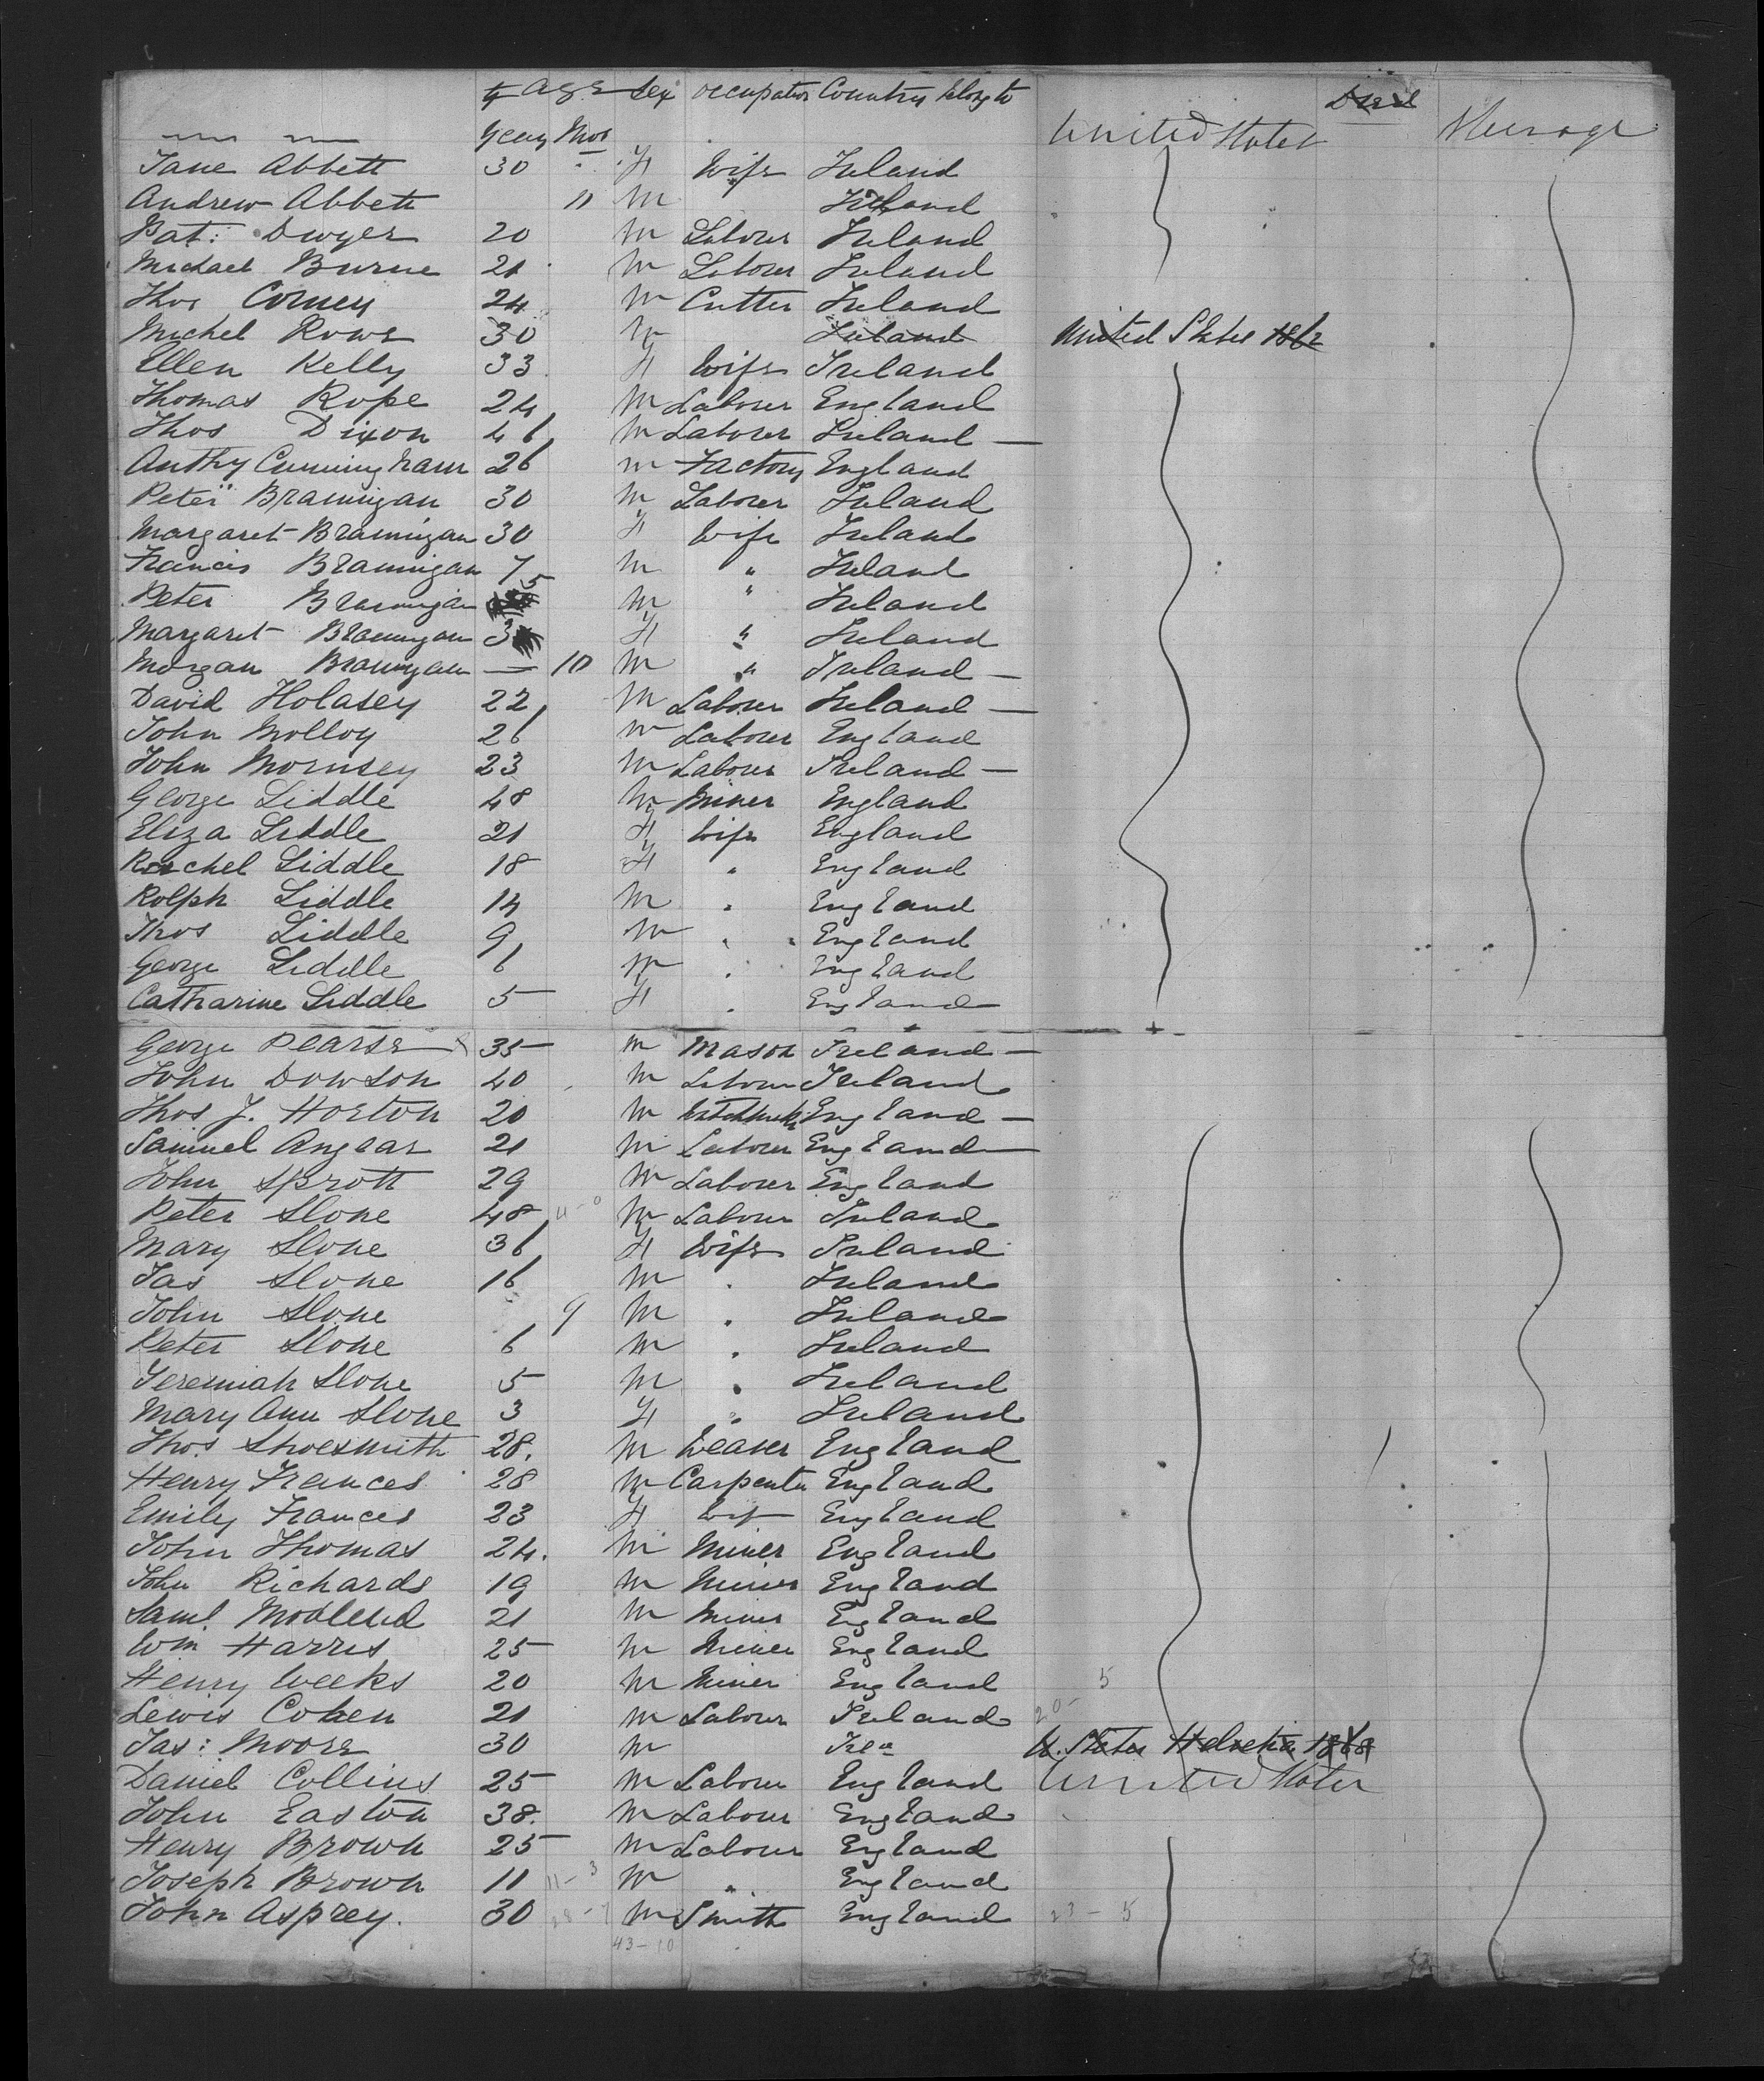 Age Sex occupation Country belong to Died
Years Mos United States Steerage
Jane Abbett 30 F Wife Ireland
Andrew Abbett 11 M Ireland
Pat: Dwyer 20 M Laborer Ireland
Michael Burne 21 M Laborer Ireland
Thos Comey 24 M Cutter Ireland
Michel Rows 30 M Ireland United States 1862
Ellen Kelly 33 F Wife Ireland
Thomas Rope 24 M Laborer England
Thos Dixon 46 M Laborer Ireland —
Anthy Cunningham 26 M Factory England
Peter Brannigan 30 M Laborer Ireland
Margaret Brannigan 30 F Wife Ireland
Francis Brannigan 7 M " Ireland
Peter Brannigan 5 M " Ireland
Margaret Brannigan 3 F " Ireland
Morgan Brannigan — 10 M " Ireland —
David Holasey 22 M Laborer Ireland —
John Molloy 26 M Laborer England
John Mornsey 23 M Laborer Ireland —
George Liddle 48 M Miner England
Eliza Liddle 21 F Wife England
Rachel Liddle 18 F " England
Rolph Liddle 14 M " England
Thos Liddle 9 M " England
George Liddle 6 M " England
Catharine Liddle 5 F " England
George Pearse 35 M Mason Ireland —
John Dowson 40 M Laborer Ireland
Thos J. Horton 20 M England —
Samuel Angear 21 M Laborer England —
John Sprott 29 M Laborer England
Peter Slone 48 M Labour Ireland
Mary Slone 36 F Wife Ireland
Jas Slone 16 M " Ireland
John Slone 9 M " Ireland
Peter Slone 6 M " Ireland
Jeremiah Slone 5 M " Ireland
Mary Ann Slone 3 F " Ireland
Thos Shoesmith 28. M Weaver England
Henry Frances 28 M Carpenter England
Emily Frances 23 F Wif England
John Thomas 24. M Miner England
John Richards 19 M Miner England
Saml. 21 M Miner England
Wm Harris 25 M Miner England
Henry Weeks 20 M Miner England 5
Lewis Cohen 21 M Labour Ireland 20-
Jas: Moore 30 M Irea U. States Helvetia 1868
Daniel Collins 25 M Labour England United States
John Easton 38. M Labour England
Henry Brown 25 M Labour England
Joseph Brown 11 11-3 M " England
John Asprey. 30 M Smith England 23-5
43-10